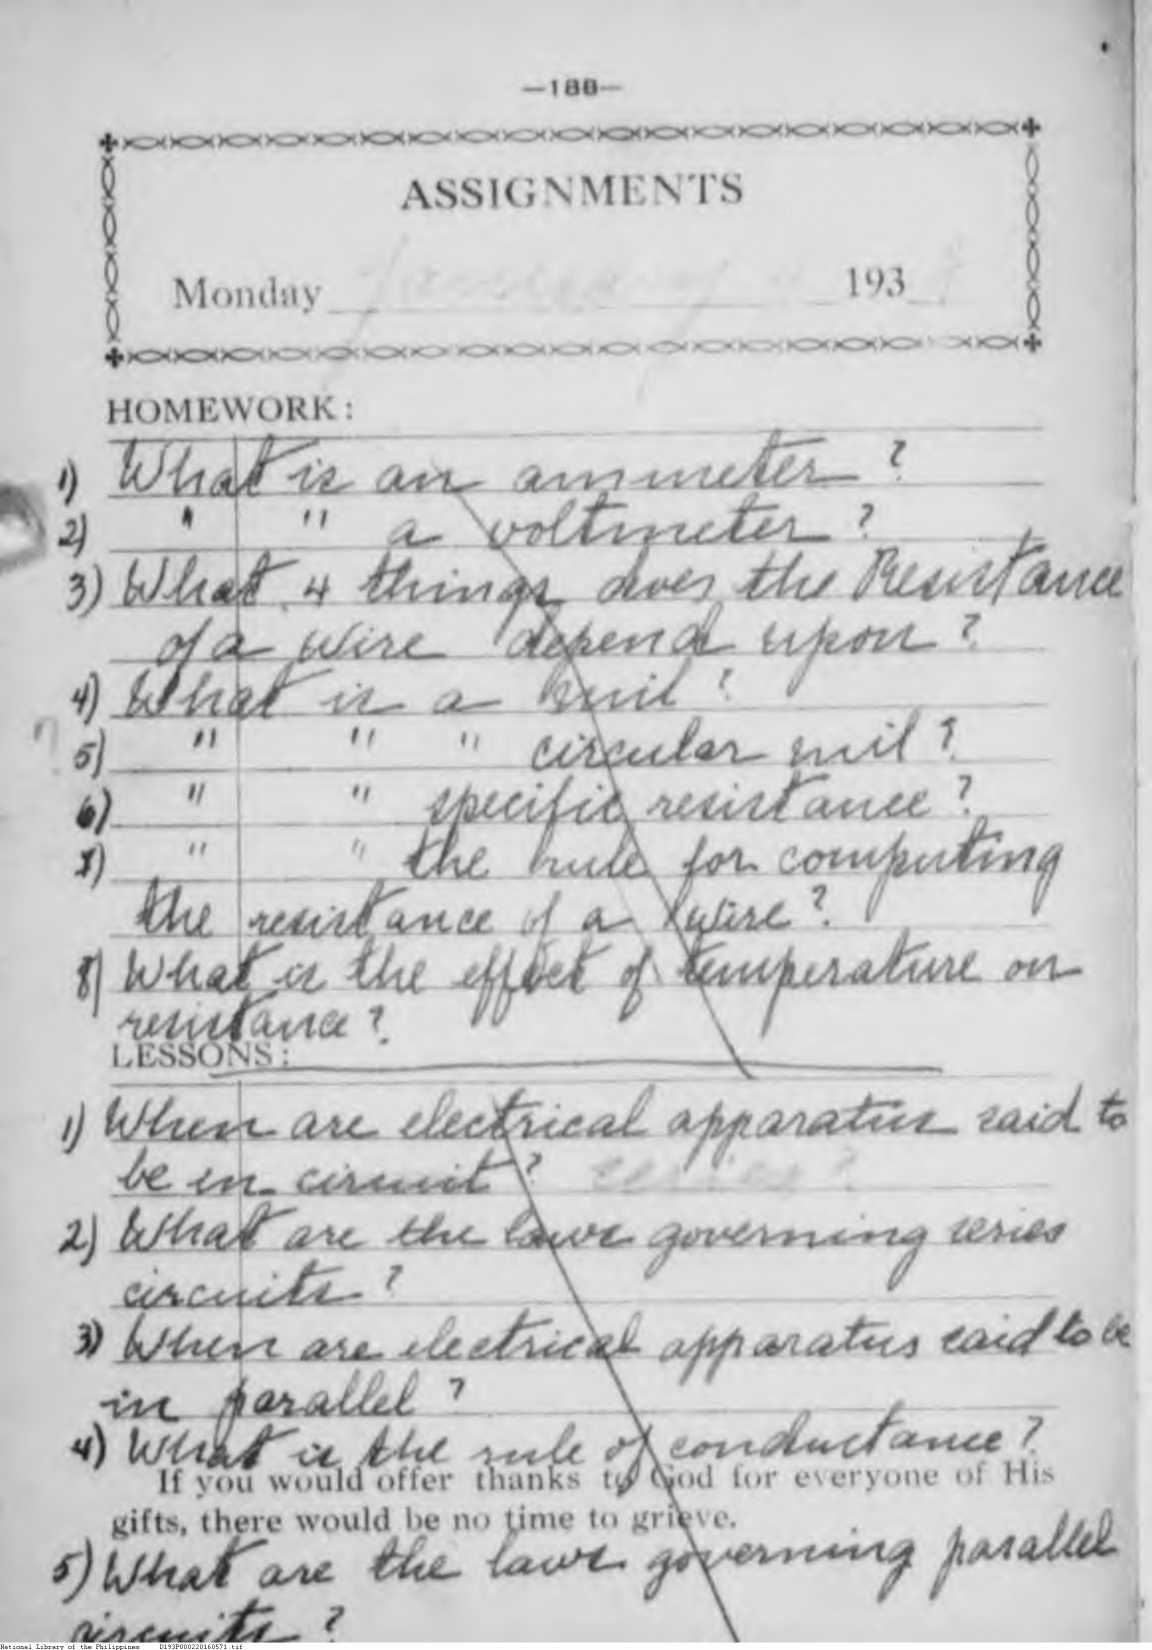 —188—
ASSIGNMENTS
Monday January 193
HOMEWORK:
1) What is an ammeter?
2) " " a voltmeter?
3) What 4 things does the Resistance
of a wire depend upon?
4) What is a mil?
5) " " " circular mil?
6) " " specific resistance?
7) " " the rule for computing
the resistance of a wire?
8) What is the effect of temperature on
resistance?
LESSONS:
1) When are electrical apparatus said to
be in circuit? series?
2) What are the laws governing series
circuits?
3) When are electrical apparatus said to be
in parallel?
4) What is the rule of conductance?
If you would offer thanks to God for everyone of His
gifts, there would be no time to grieve.
5) What are the laws governing parallel
circuits?
National Library of the Philippines D193P000220160571.tif